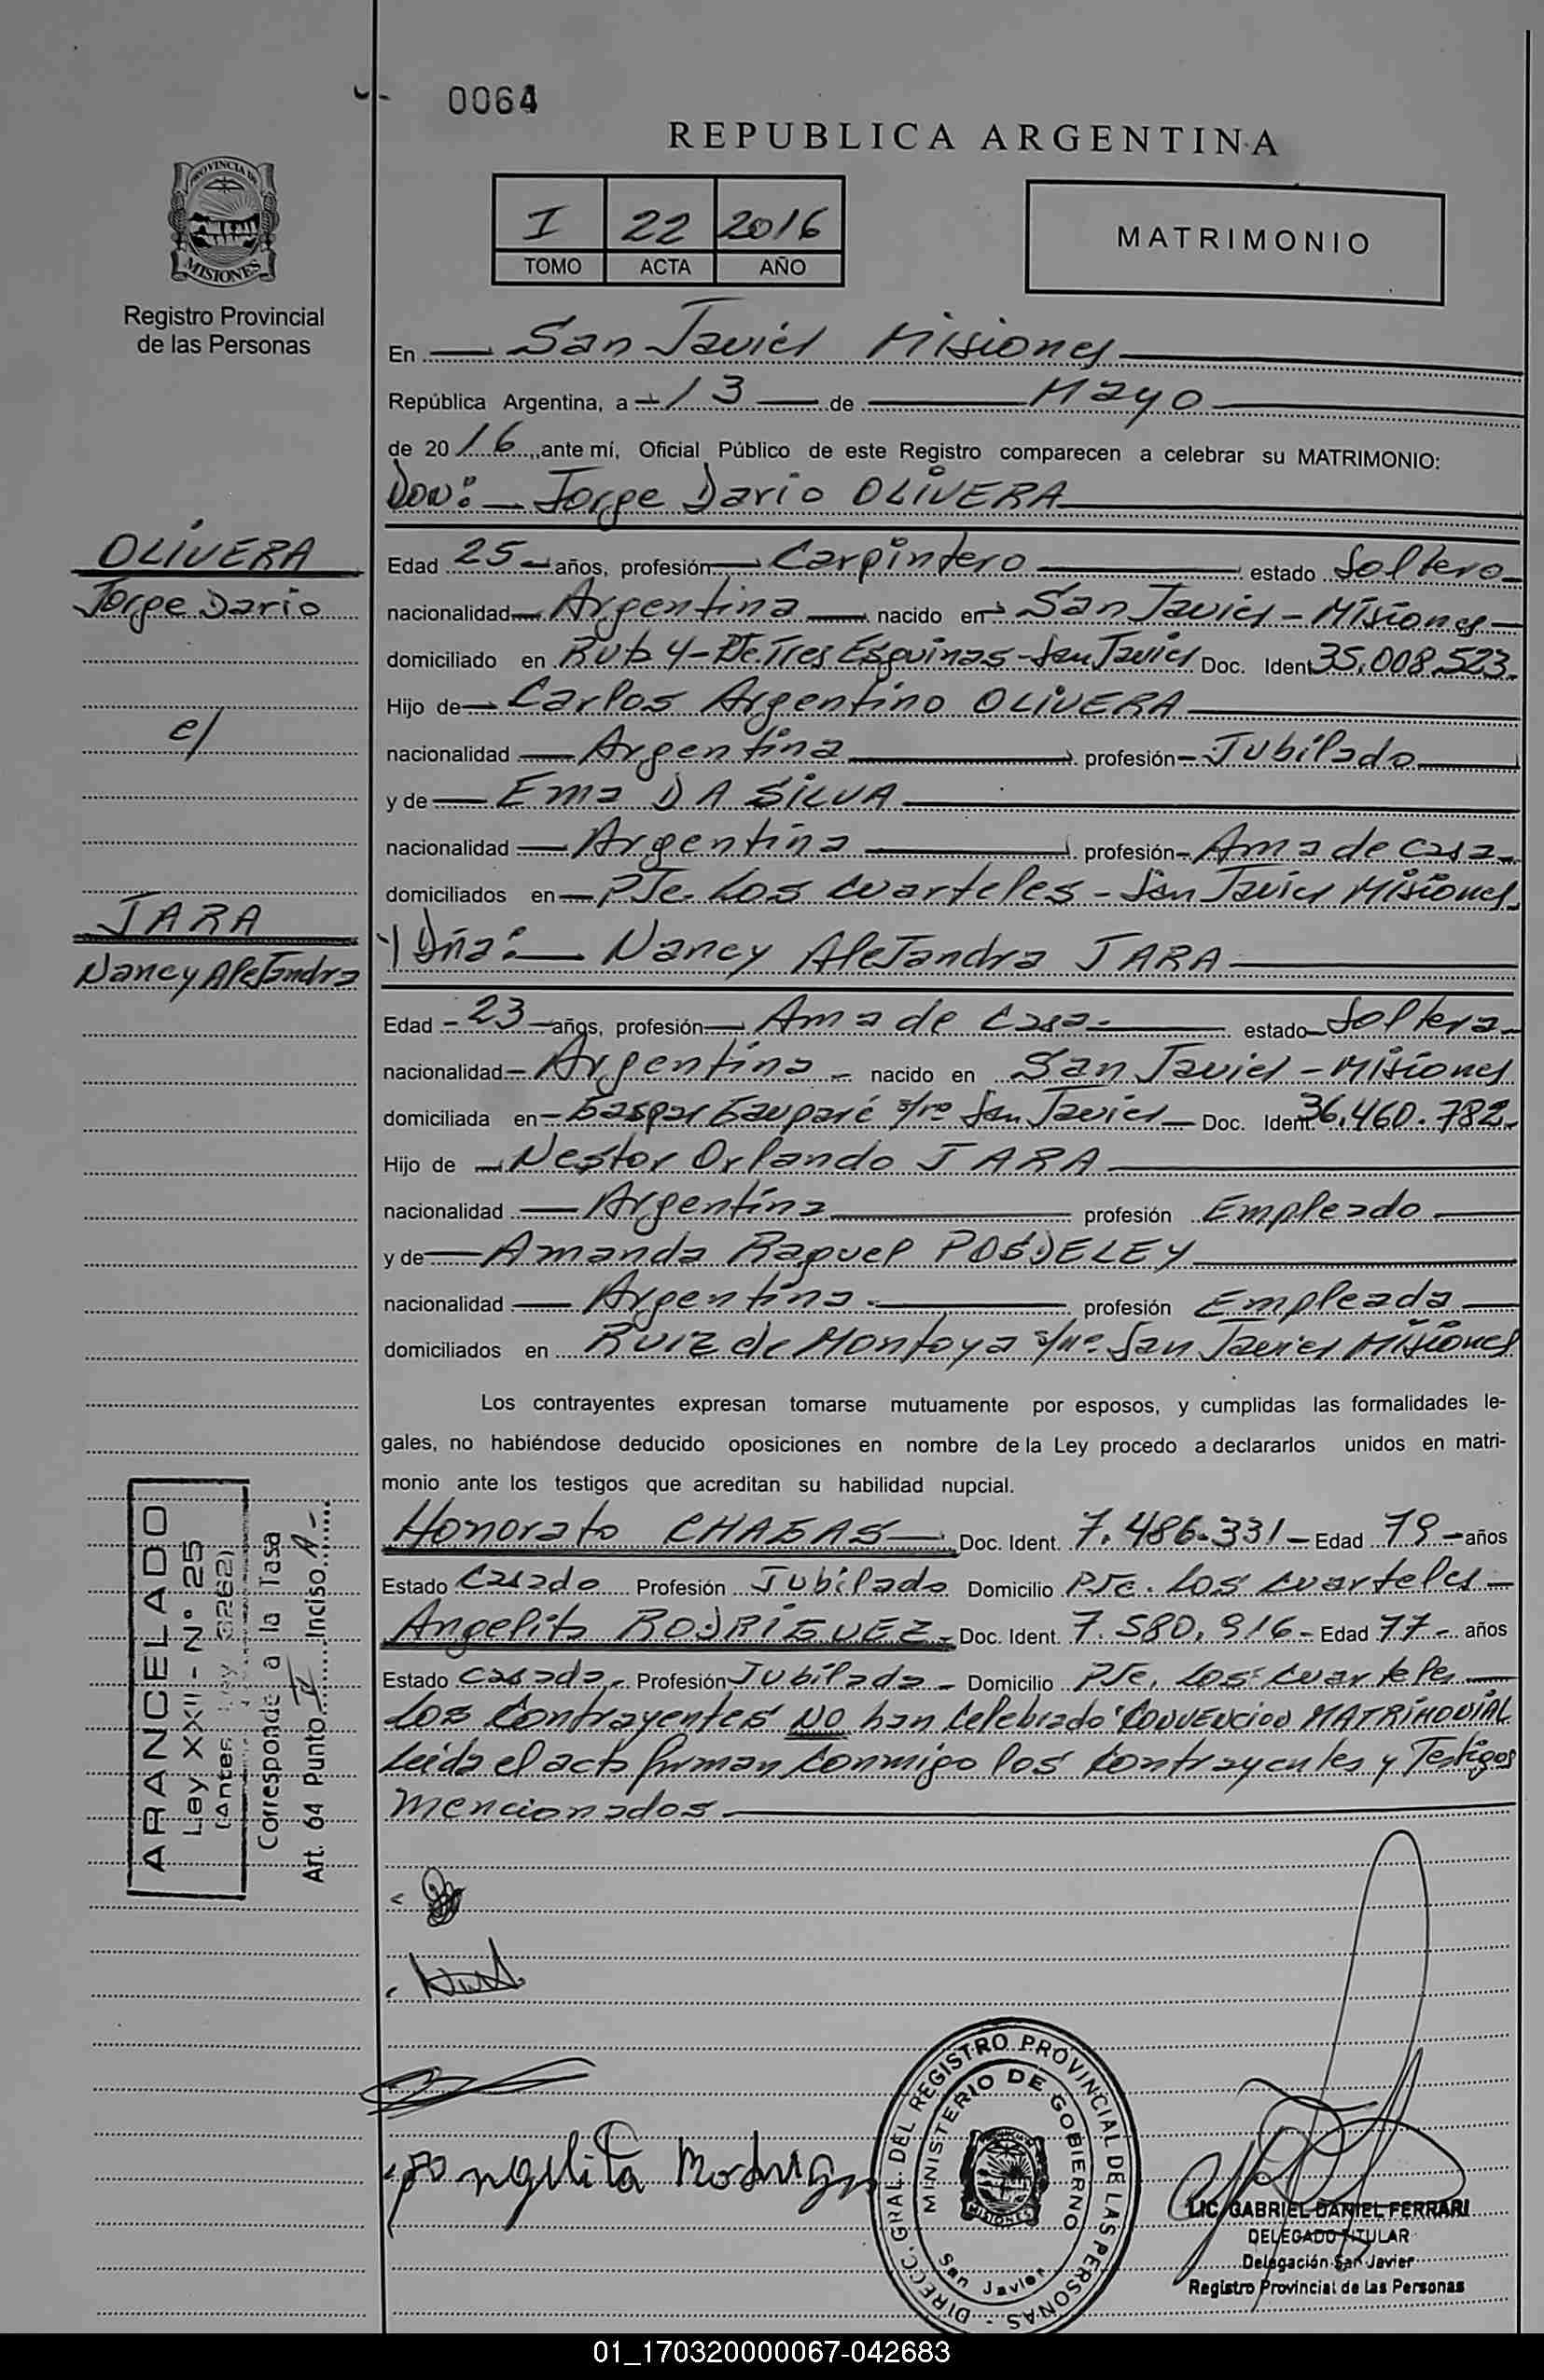 0064
REPUBLICA ARGENTINA
PROVINCIA DE
MISIONES
Registro Provincial
de las Personas
I 22 2016
TOMO ACTA AÑO
MATRIMONIO
En San Javier Misiones
República Argentina, a 13 de Mayo
de 2016, ante mí, Oficial Público de este Registro comparecen a celebrar su MATRIMONIO:
Don: Jorge Dario OLIVERA
OLIVERA
Jorge Dario
Edad 25 años, profesión Carpintero estado Soltero
nacionalidad Argentina nacido en San Javier - Misiones
domiciliado en Ruta 4 - Tres Esquinas - San Javier Doc. Ident 35.008.523.
Hijo de Carlos Argentino OLIVERA
c/
nacionalidad Argentina profesión Jubilado
y de Ema DA SILVA
nacionalidad Argentina profesión Ama de casa
domiciliados en Pje. Los Cuarteles - San Javier Misiones
JARA
Nancy Alejandra
Y Dña: Nancy Alejandra JARA
Edad 23 años, profesión Ama de Casa estado Soltera
nacionalidad Argentina nacido en San Javier - Misiones
domiciliada en Gaspar s/nº San Javier Doc. Ident 36.460.782.
Hijo de Nestor Orlando JARA
nacionalidad Argentina profesión Empleado
y de Amanda Raquel POSDELEY
nacionalidad Argentina profesión Empleada
domiciliados en Ruiz de Montoya s/nº San Javier Misiones
Los contrayentes expresan tomarse mutuamente por esposos, y cumplidas las formalidades le-
gales, no habiéndose deducido oposiciones en nombre de la Ley procedo a declararlos unidos en matri-
monio ante los testigos que acreditan su habilidad nupcial.
Honorato CHAGAS Doc. Ident. 7.486.331 Edad 79 años
Estado Casado Profesión Jubilado Domicilio Pje. Los Cuarteles
Angelita RODRIGUEZ Doc. Ident. 7.580.916 Edad 77 años
Estado Casada Profesión Jubilada Domicilio Pje. Los Cuarteles
Los Contrayentes NO han Celebrado CONVENCION MATRIMONIAL
Leida el acta firman Conmigo los Contrayentes y Testigos
mencionados
ARANCELADO
Ley XXII - N° 25
(Antes Ley 3262)
Corresponde a la Tasa
Art. 64 Punto IV Inciso A
Angelita Rodriguez
DIRECC. GRAL. DEL REGISTRO PROVINCIAL DE LAS PERSONAS
MINISTERIO DE GOBIERNO
MISIONES
San Javier
LIC. GABRIEL DANIEL FERRARI
DELEGADO TITULAR
Delegación San Javier
Registro Provincial de las Personas
01_170320000067-042683